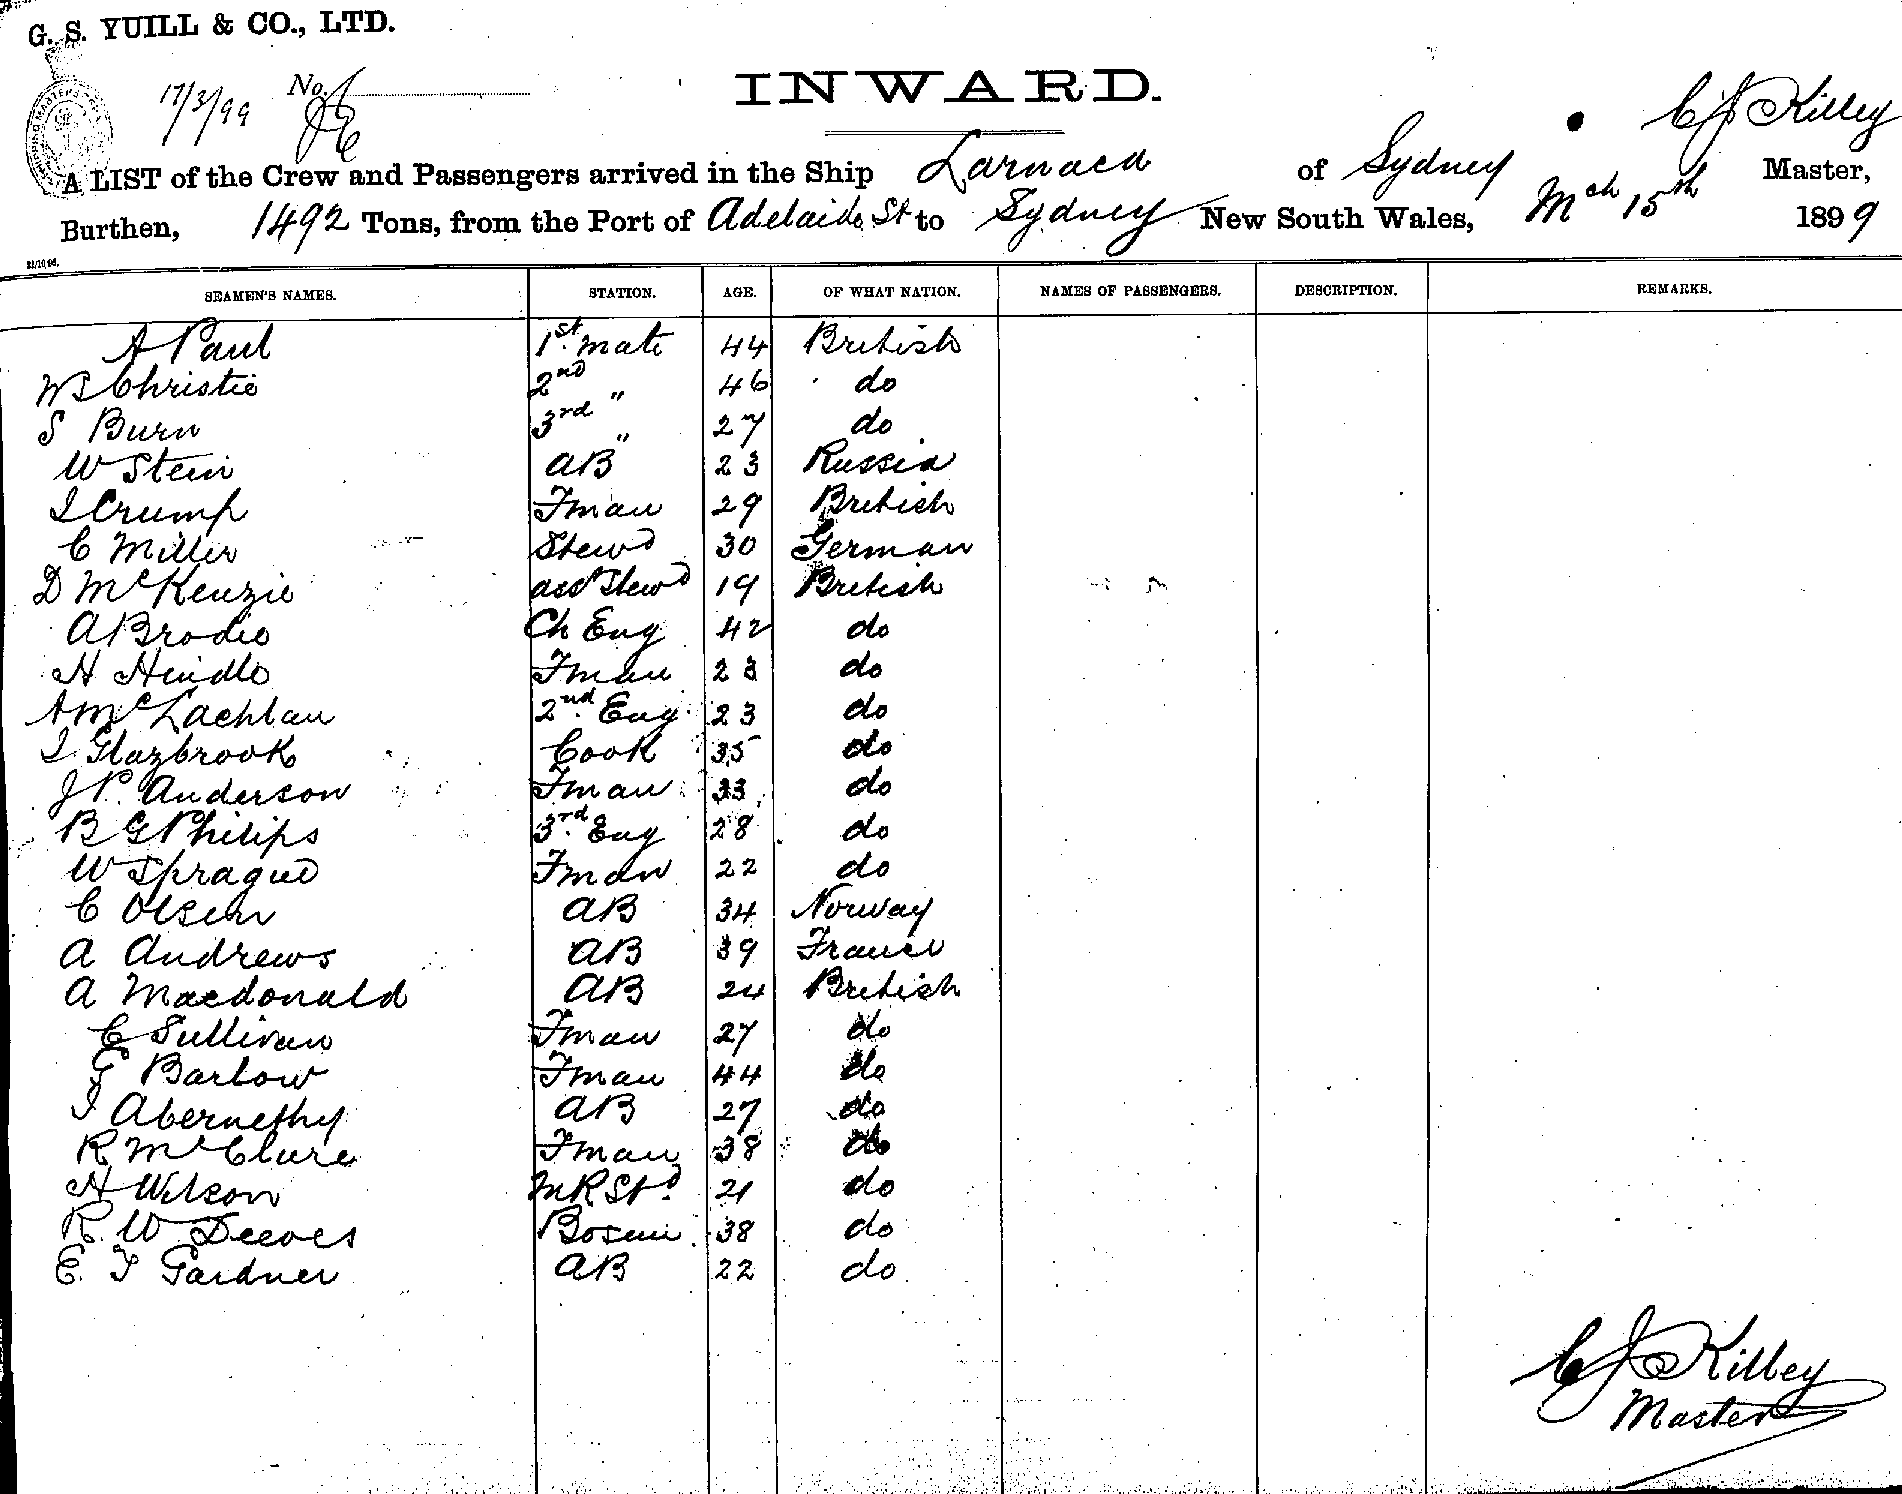 G. S. YUILL & CO., LTD.
17/3/99 No.
INWARD.
C J Killey
A LIST of the Crew and Passengers arrived in the Ship Larnaca of Sydney Master,
Burthen, 1492 Tons, from the Port of Adelaide St to Sydney New South Wales, Mch 15th 1899
SEAMEN'S NAMES. STATION. AGE. OF WHAT NATION. NAMES OF PASSENGERS. DESCRIPTION. REMARKS.
A Paul 1st. mate 44 British
W S Christie 2nd " 46 do
S Burn 3rd " 27 do
W Stein AB 23 Russia
I Crump Fman 29 British
C Miller Stewd 30 German
D McKenzie asst Stewd 19 British
A Brodie Ch Eng 42 do
H Hindle Fman 23 do
A McLachlan 2nd. Eng 23 do
I Glazbrook Cook 35 do
J P. Anderson Fman 33 do
B G Philips 3rd. Eng 28 do
W Sprague Fman 22 do
C Olsen AB 34 Norway
A Andrews AB 39 France
A Macdonald AB 24 British
C Sullivan Fman 27 do
G Barlow Fman 44 do
I Abernethy AB 27 do
R McClure Fman 38 do
H Wilson M R Std. 21 do
R. W Deeves Bosun 38 do
E. F Gardner AB 22 do
C J Killey
Master